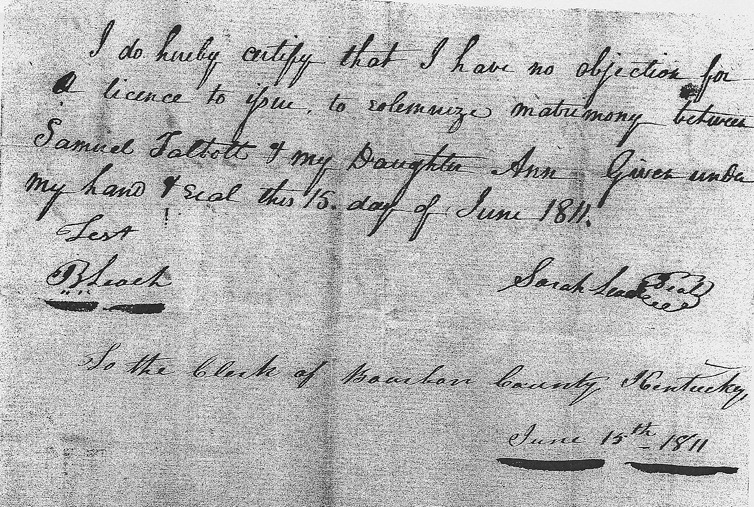 I do hereby certify that I have no objection for
a licence to issue, to solemnize matrimony between
Samuel Talbott & my Daughter Ann Given under
my hand & seal this 15. day of June 1811.
Test
B Leach
Sarah Leach Seal
To the Clerk of Bourbon County Kentucky,
June 15th 1811